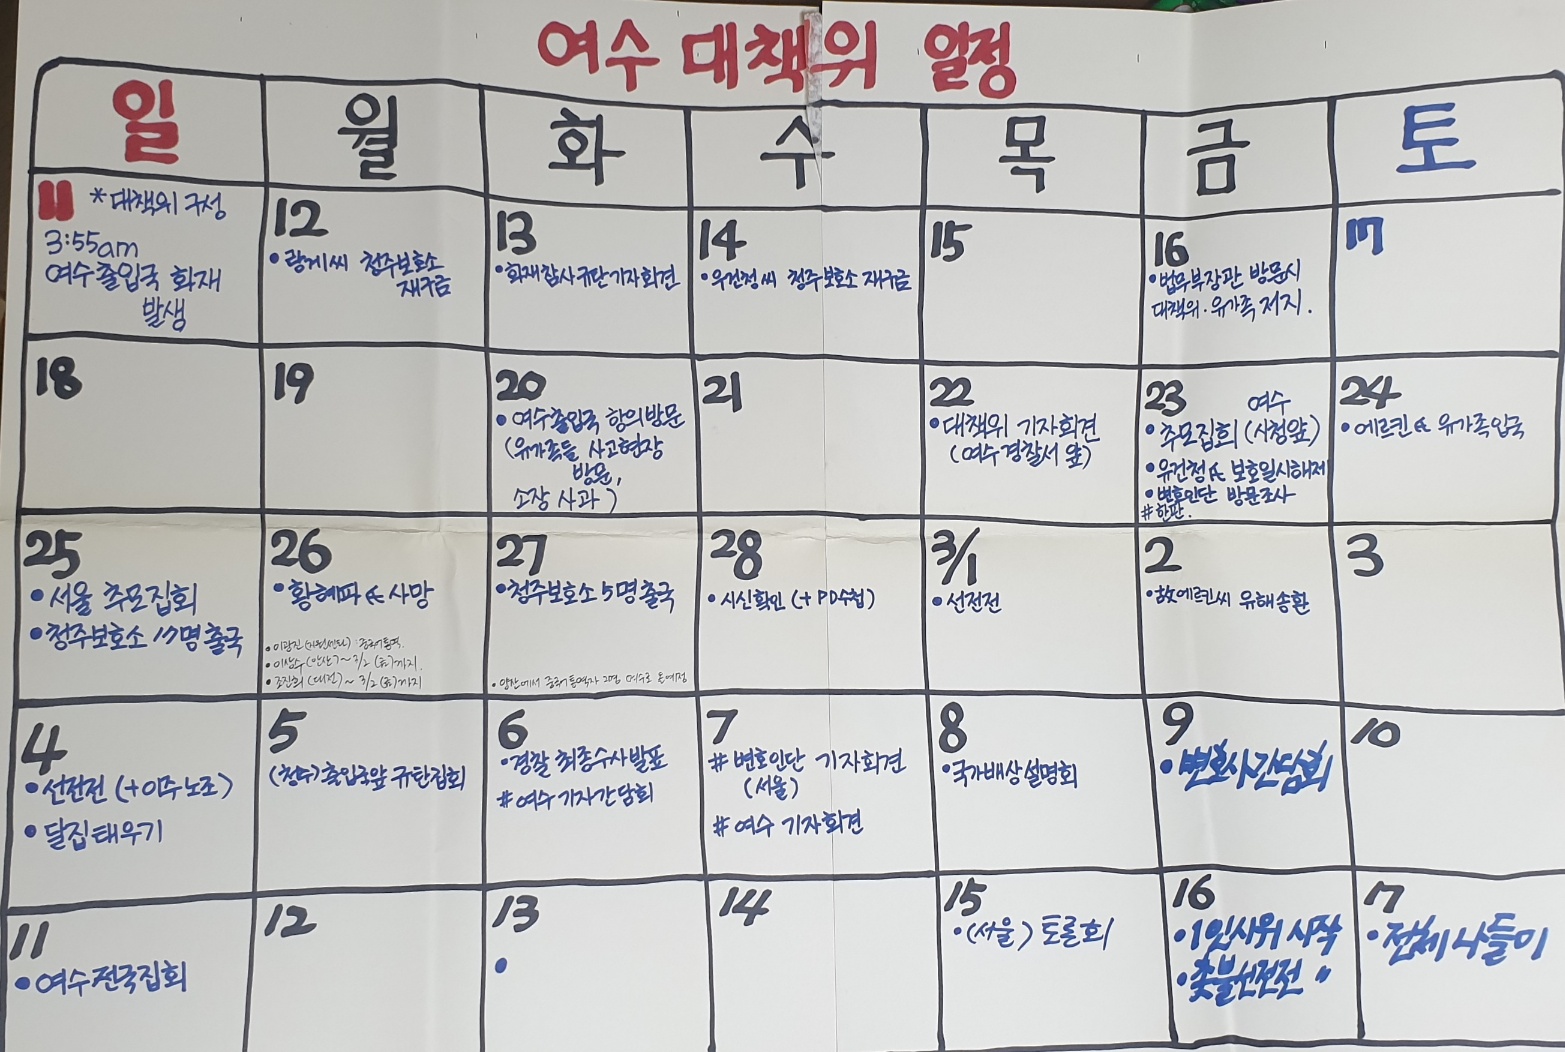 여수 대책위 일정
일 월 화 수 목 금 토
11 *대책위 구성
3:55am
여수출입국 화재
발생
12
•광게씨 청주보호소
재구금
13
•화재참사규탄기자회견
14
•우건청씨 청주보호소 재구금
15
16
•법무부장관 방문시
대책위·유가족 저지.
17
18
19
20
•여수출입국 항의방문
(유가족들 사고현장
방문,
소장 사과)
21
22
•대책위 기자회견
(여수경찰서 앞)
23 여수
•추모집회 (시청앞)
•유건청氏 보호일시해제
•변호인단 방문조사
#한판.
24
•에르킨氏 유가족입국
25
•서울 추모집회
•청주보호소 17명출국
26
•황해파氏 사망
•이상수(안산)~3/2(金)까지.
•조진희(대전)~3/2(金)까지
27
•청주보호소 5명출국
28
•시신확인 (+PD수첩)
3/1
•선전전
2
•故에르킨씨 유해송환
3
4
•선전전 (+이주노조)
•달집태우기
5
출입국앞 규탄집회
6
•경찰 최종수사발표
#여수기자간담회
7
# 변호인단 기자회견
(서울)
# 여수 기자회견
8
•국가배상설명회
9
•변호사간담회
10
11
•여수전국집회
12
13
•
14
15
•(서울) 토론회
16
•1인시위 시작
•촛불선전전 〃
17
•전체나들이